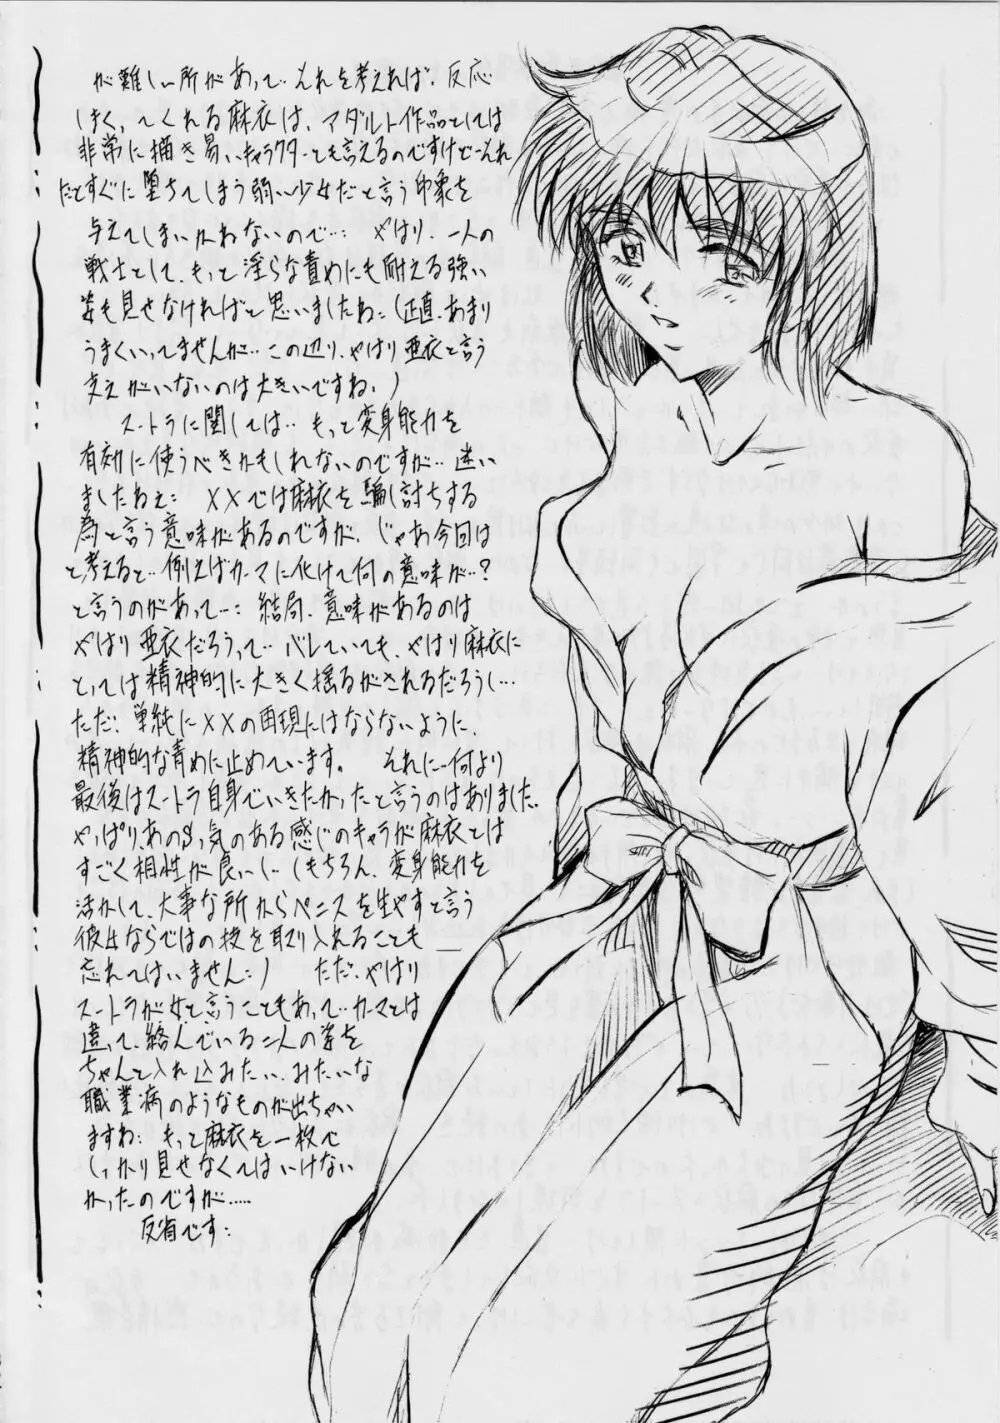 が難しい所があって‥それを考えれば、反応
しまくってくれる麻衣は、アダルト作品としては
非常に描き易いキャラクターとも言えるのですけど‥それ
だとすぐに堕ちてしまう弱い少女だと言う印象を
与えてしまいかねないので… やはり、一人の
戦士として、もっと淫らな責めにも耐える強い
姿も見せなければと思いましたね:(正直、あまり
うまくいってませんが‥この辺り、やはり亜衣と言う
支えがいないのは大きいですね、)
スートラに関しては‥もっと変身能力を
有効に使うべきかもしれないのですが‥迷い
ましたねぇ: XXでは麻衣を騙し討ちする
為と言う意味があるのですが、じゃあ今回は
と考えると‥例えばカーマに化けて何の意味が‥?
と言うのがあって…: 結局、意味があるのは
やはり亜衣だろうって‥バレていても、やはり麻衣に
とっては精神的に大きく揺るがされるだろうし…
ただ、単純にXXの再現にはならないように、
精神的な責めに止めています。 それに‥何より
最後はスートラ自身でいきたかったと言うのはありました、
やっぱり、あのSっ気のある感じのキャラが麻衣とは
すごく相性が良いし‥(もちろん、変身能力を
活かして、大事な所からペニスを生やすと言う
彼女ならではの技を取り入れることも
忘れてはいません:) ただ、やはり
スートラが女と言うこともあって‥カーマとは
違って絡んでいる二人の姿を
ちゃんと入れ込みたい‥みたいな
職業病のようなものが出ちゃい
ますね: もっと麻衣を一枚で
しっかり見せなくてはいけない
かったのですが……
反省です: